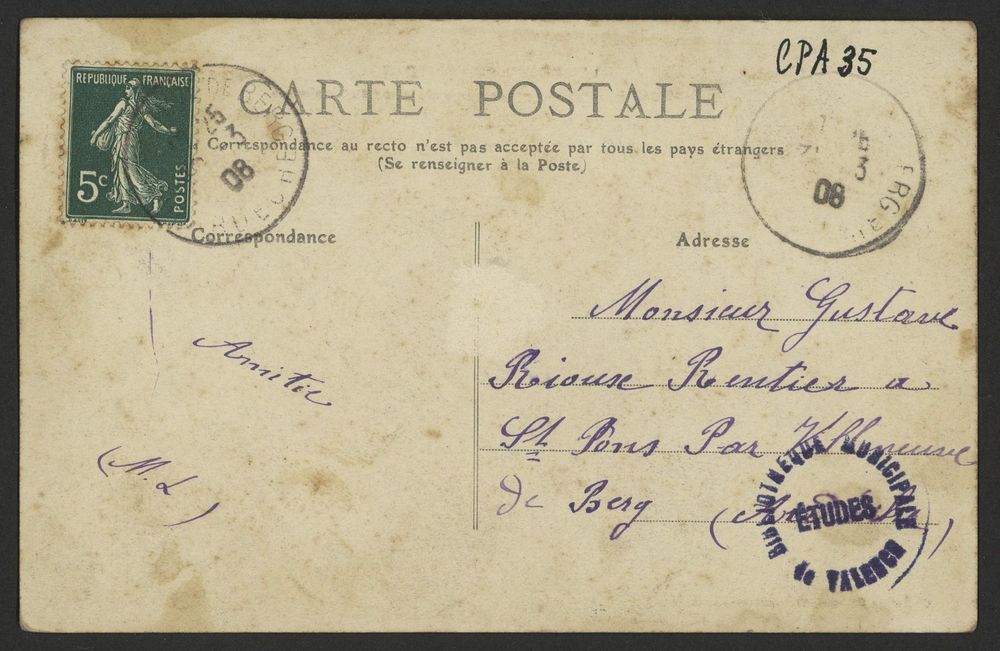 CPA 35
REPUBLIQUE FRANÇAISE
5c
POSTES
DE BERG
25
3
08
CARTE POSTALE
La Correspondance au recto n'est pas acceptée par tous les pays étrangers
(Se renseigner à la Poste)
3
08
Correspondance
Adresse
Amitié
(M. L)
Monsieur Gustave
Rioux Rentier a
St Pons Par Villeneuve
de Berg (Ardèche)
BIBLIOTHÈQUE MUNICIPALE
ÉTUDES
DE VALENCE